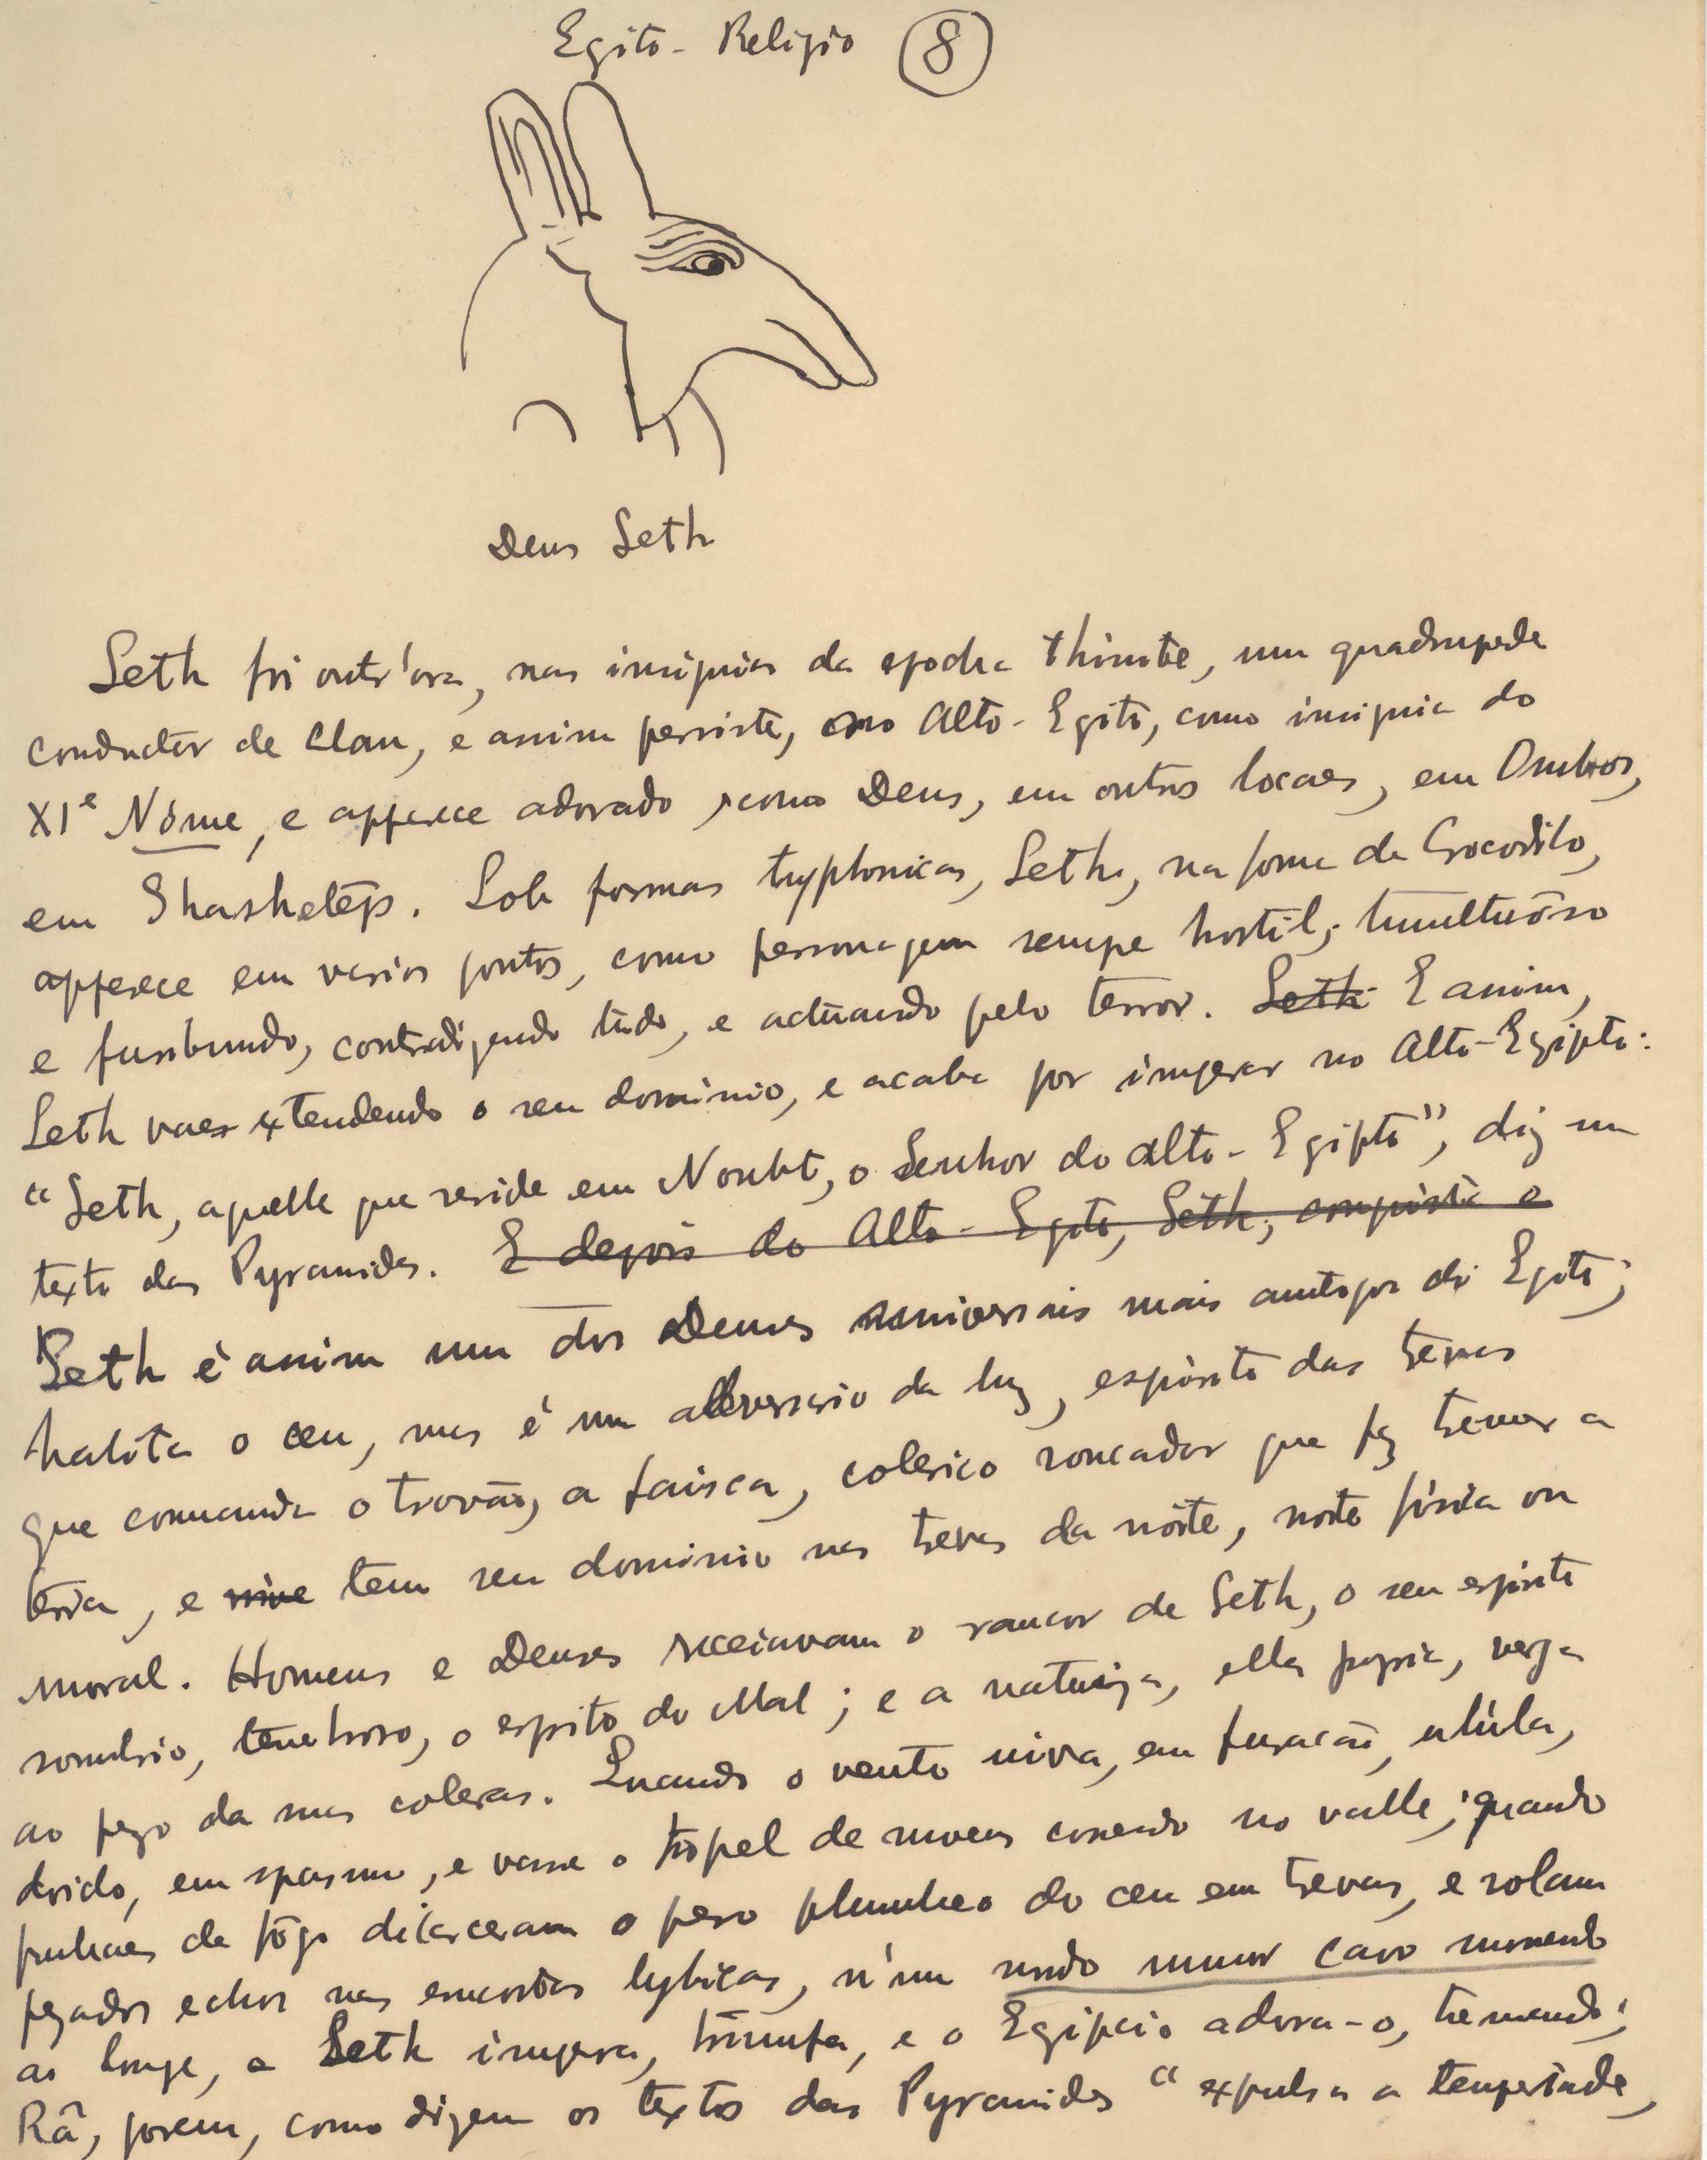 Egito - Religio 8
Deus Seth
Seth foi outr'ora, nas insignias da epocha thinite, um quadrupede
conductor de Clan, e assim persiste, no Alto-Egito, como insignia do
XIe Nóme, e apparece adorado, como Deus, em outros locaes, em Ombos,
em Shashetep. Sob formas typhonicas, Seth, na forma de Crocodilo,
apparece em varios pontos, como personagem sempre hostil, tumultuôso
e furibundo, contradizendo tudo, e actuando pelo terror. Seth E assim,
Seth vae extendendo o seu dominio, e acaba por imperar no Alto-Egipto:
"Seth, aquelle que reside em Noubt, o Senhor do alto-Egipto", diz um
texto das Pyramides. E depois do Alto-Egito, Seth, conquista o
Seth é assim um dos Deuses universais mais antigos do Egito;
habita o ceu, mas é um adversario da luz, espirito das trevas
que commanda o trovão, a faisca, colerico roncador que faz tremer a
terra, e vive tem seu dominio nas trevas da noite, noite fisica ou
moral. Homens e Deuses receiavam o rancor de Seth, o seu espirito
sombrio, tenebroso, o espirito do Mal; e a natureza, ella propria, verga
ao pezo da suas coleras. Quando o vento uiva, em furacão, ulúla,
doido, em spasmo, e varre o tropel de nuvens correndo no valle; quando
punhaes de fôgo dilaceram o pezo plumbeo do ceu em trevas, e rolam
pezados echos nas encostas lybicas, n'um surdo rumor cavo morrendo
ao longe, a Seth impera, triumfa, e o Egipcio adora-o, tremendo;
Râ, porem, como dizem os textos das Pyramides "expulsa a tempestade,